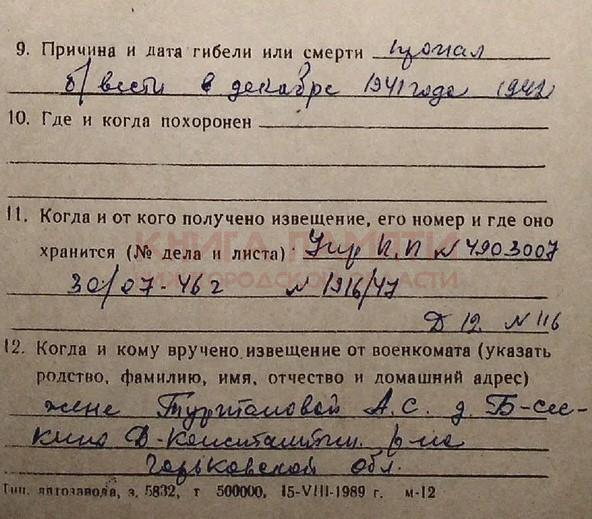 9. Причина и дата гибели или смерти пропал
б/вести в декабре 1941 года (1942)
10. Где и когда похоронен
11. Когда и от кого получено извещение, его номер и где оно
КНИГА ПАМЯТИ
хранится (№ дела и листа) Упр К.П N 4903007
НИЖЕГОРОДСКОЙ ОБЛАСТИ
30/07-46 г N 1916/47
Д 12 N 116
12. Когда и кому вручено извещение от военкомата (указать
родство, фамилию, имя, отчество и домашний адрес)
жене А. С. д. Б-Сес-
кино Д-Константин. р-на
Горьковской обл.
Тип. автозавода, з. 5832, т 500000, 15-VIII-1989 г. м-12